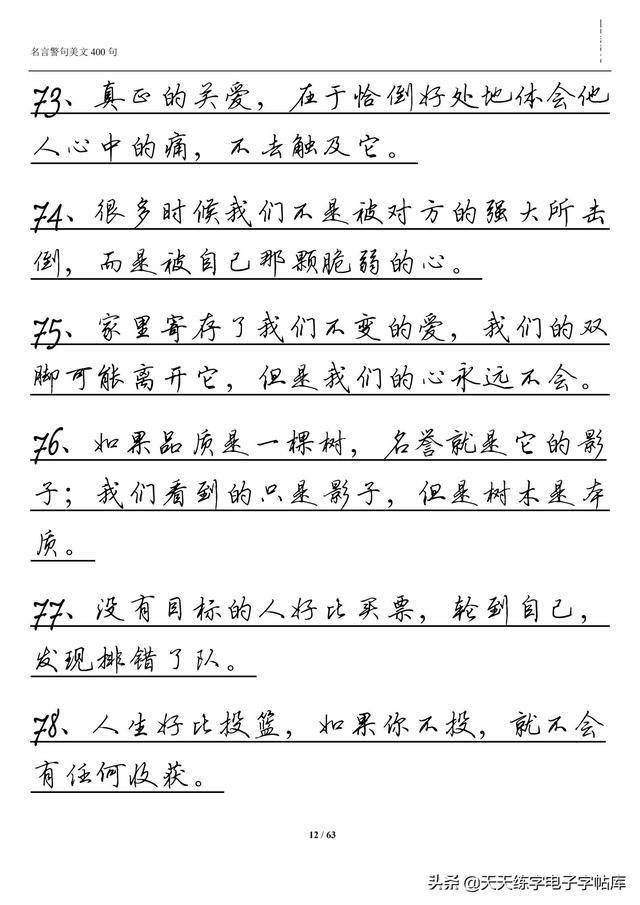 名言警句美文 400 句
73、真正的关爱，在于恰倒好处地体会他
人心中的痛，不去触及它。
74、很多时候我们不是被对方的强大所击
倒，而是被自己那颗脆弱的心。
75、家里寄存了我们不变的爱，我们的双
脚可能离开它，但是我们的心永远不会。
76、如果品质是一棵树，名誉就是它的影
子；我们看到的只是影子，但是树木是本
质。
77、没有目标的人好比买票，轮到自己，
发现排错了队。
78、人生好比投篮，如果你不投，就不会
有任何收获。
12 / 63
头条 @天天练字电子字帖库